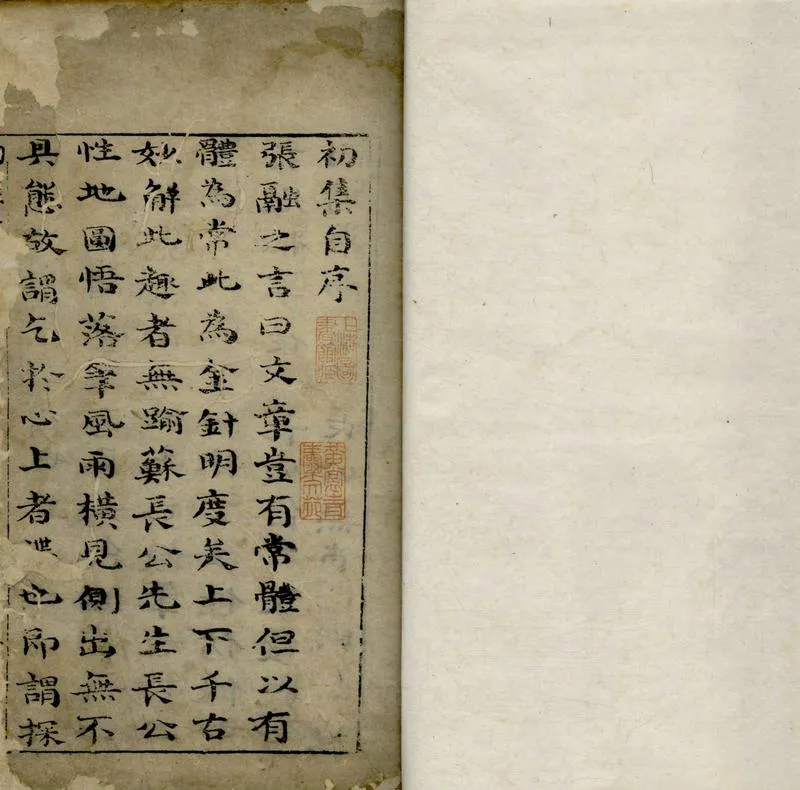 初集自序
上海圖書館藏
張融之言曰文章豈有常體但以有
體為常此為金針明度矣上下千古
妙解此趣者無踰蘇長公先生長公
性地圖悟落筆風雨橫見側出無不
具態故謂乞於心上者也即謂探